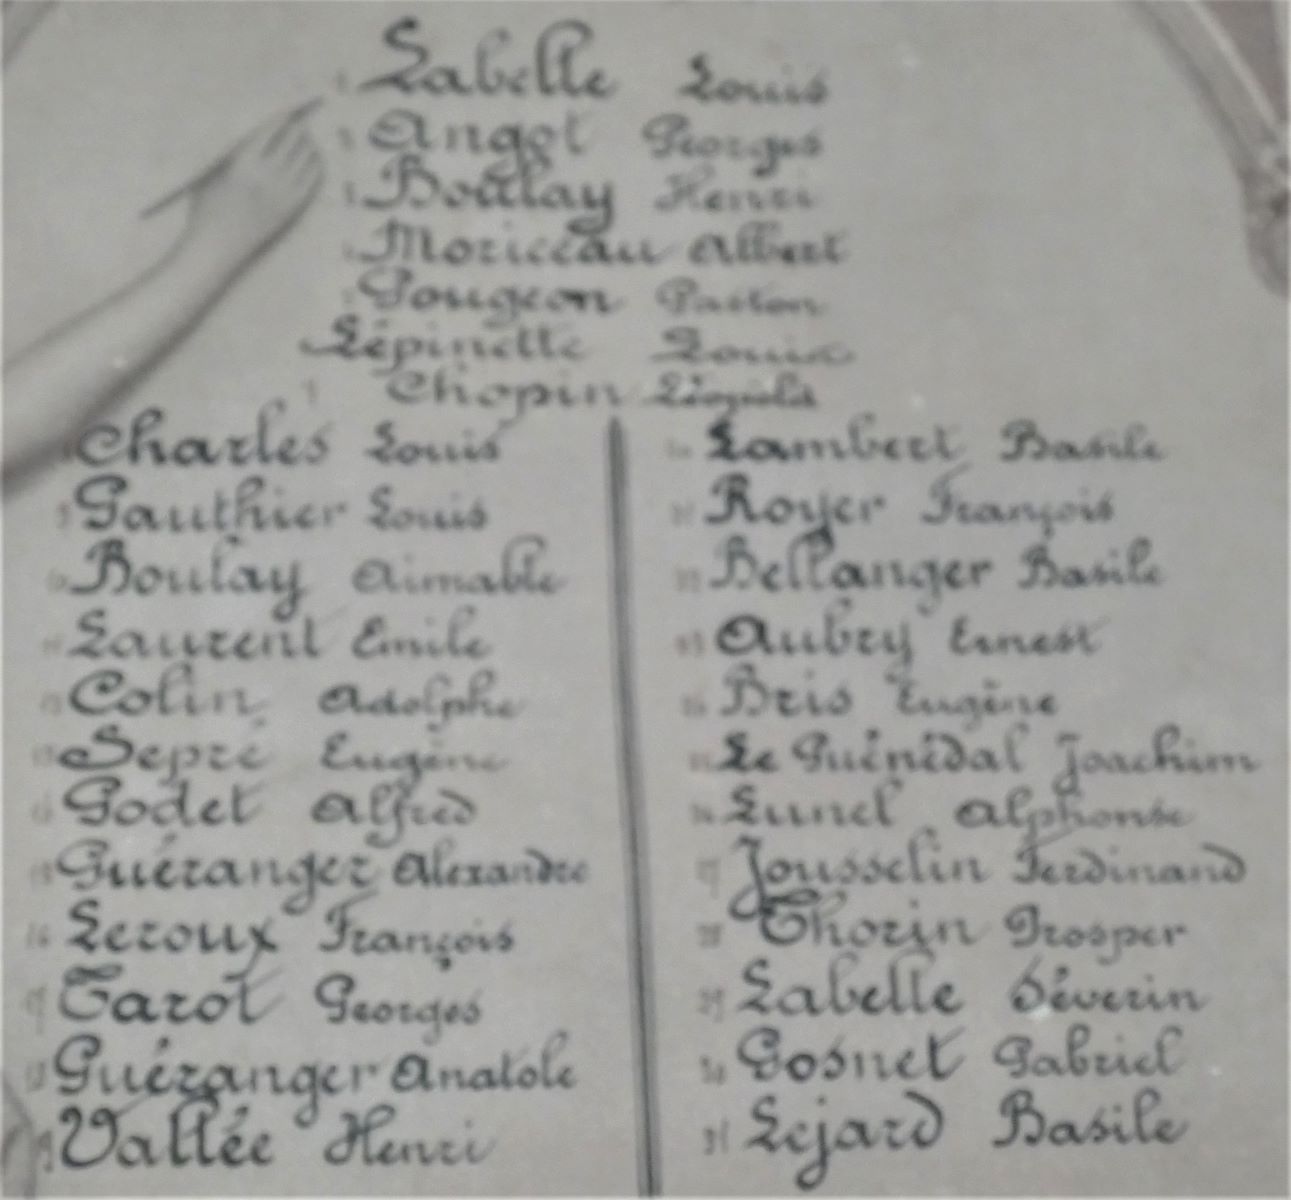 Labelle Louis
Angot Georges
Boulay Henri
Moriceau Albert
Pougeon Gaston
Lépinette Louis
Chopin Léopold
Charles Louis
Gauthier Louis
Boulay Aimable
Laurent Emile
Colin Adolphe
Sepré Eugène
Godet Alfred
Guéranger Alexandre
16 Leroux François
17 Tarot Georges
18 Guéranger Anatole
Vallée Henri
Lambert Basile
Royer François
Bellanger Basile
Aubry Ernest
Bris Eugène
Le Guénédal Joachim
Lunel Alphonse
27 Jousselin Ferdinand
28 Thorin Prosper
29 Labelle Séverin
30 Gosnet Gabriel
31 Lejard Basile